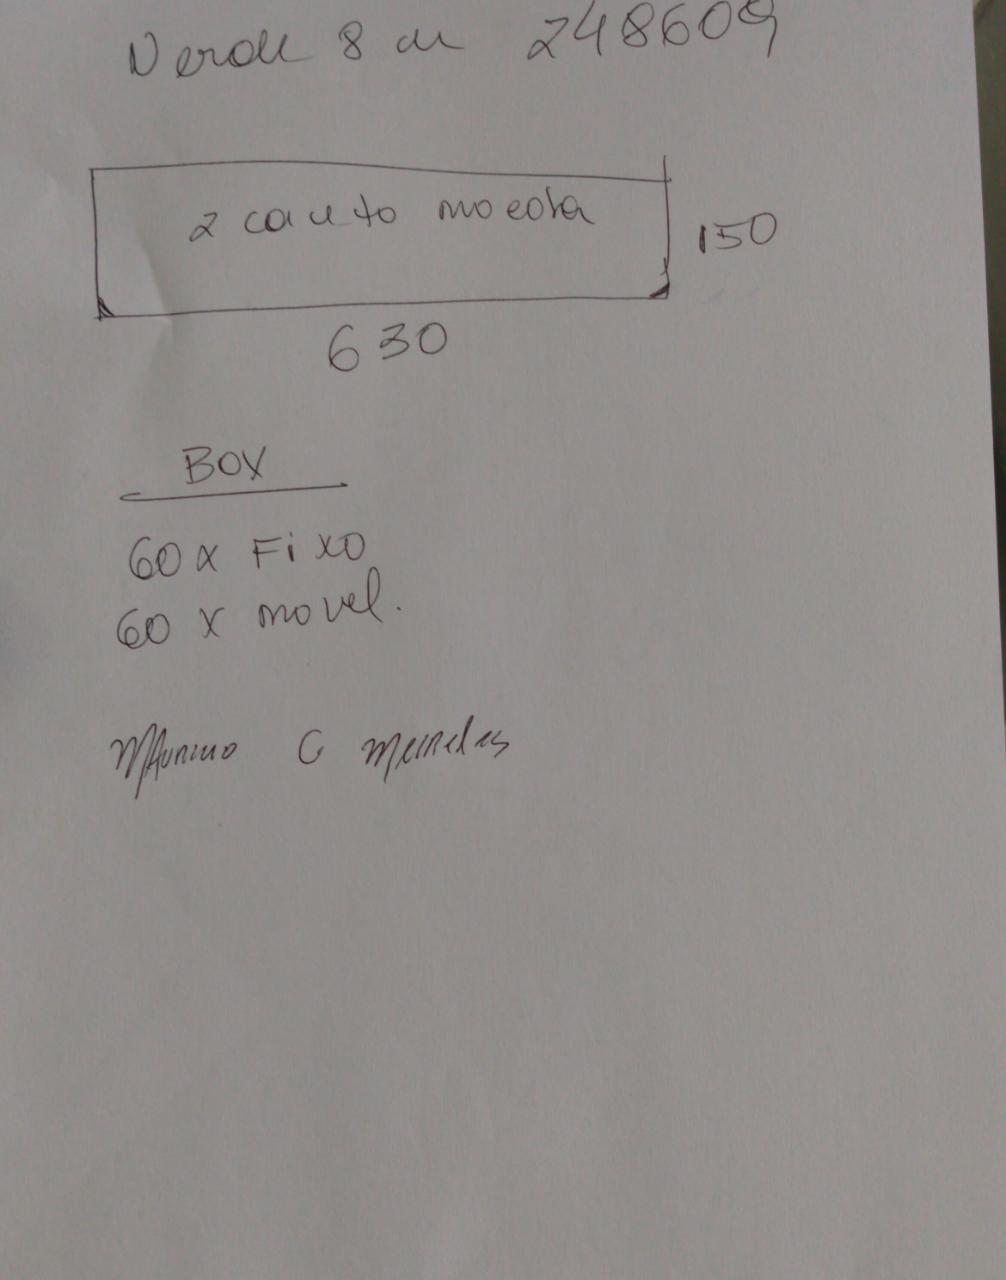 Verde 8 m 248609
2 canto moeda
150
630
BOX
60 x Fixo
60 x movel.
C